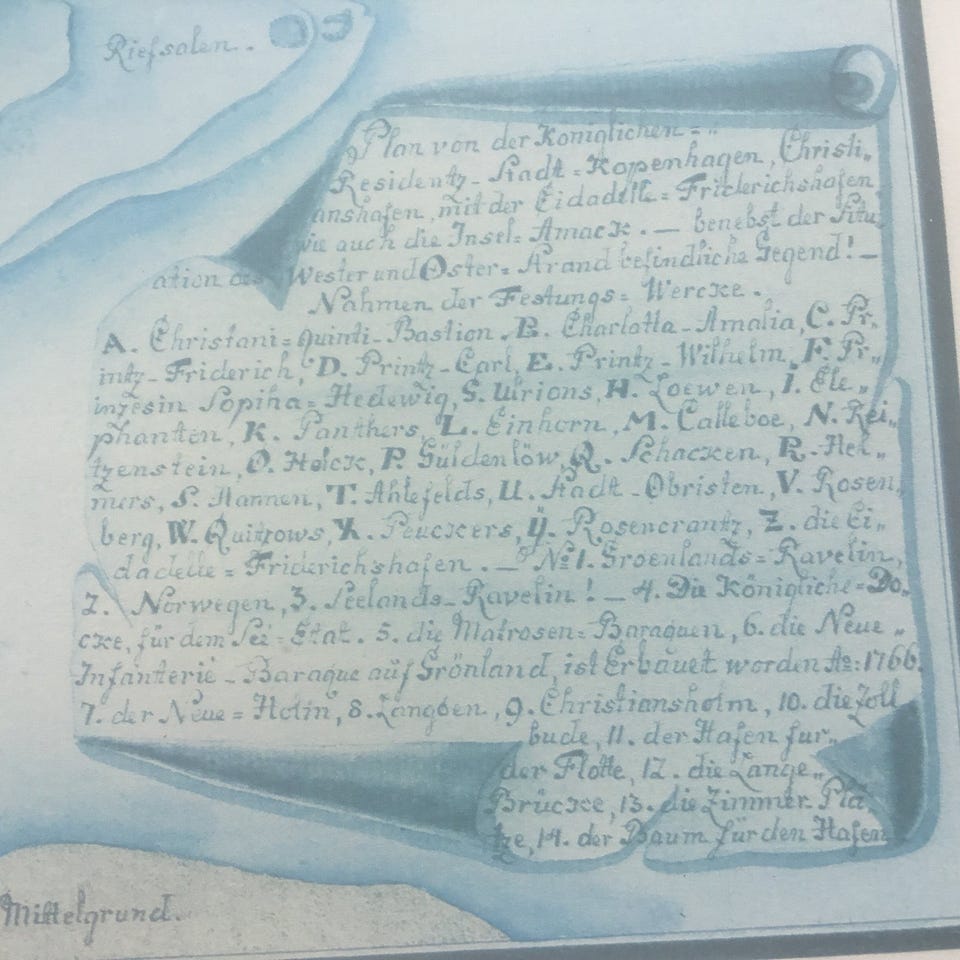 Riefsalen.
Plan von der Koniglichen=„
Residentz-Stadt=Kopenhagen, Christi„
anshafen, mit der Cidadelle=Friderichshafen
wie auch die Insel=Amack. — benebst der Situ„
ation des Wester und Oster=Arand befindliche Gegend! —
Nahmen der Festungs=Wercke.
A. Christani=quinti-Bastion. B. Charlotta-Amalia, C. Pr„
intz-Friderich, D. Printz-Carl, E. Printz-Wilhelm, F. Pr„
inzesin Sopiha=Hedewig, G. Ulrions, H. Loewen, i. Ele=
phanten, K. Panthers, L. Einhorn, M. Calleboe, N. Rei„
tzenstein, O. Holck, P. Güldenlöw, Q. Schacken, R. Hel„
mers, S. Hannen, T. Ahlefelds, U. Stadt-Obristen, V. Rosen„
berg, W. Quitzows, X. Peuckers, Ÿ. Rosencrantz, Z. die Ci„
dadelle=Friderichshafen. — No 1. Groenlands=Ravelin,
2. Norwegen, 3. Seelands-Ravelin! — 4. Die Königliche=Do„
cke, für dem See=Etat. 5. die Matrosen=Baraquen, 6. die Neue„
Infanterie-Baraque auf Grönland, ist Erbauet worden Ao: 1766.
7. der Neue=Holm, 8. Langöen, 9. Christiansholm, 10. die Zoll
bude, 11. der Hafen fur„
der Flotte, 12. die Lange„
Brücke, 13. die Zimmer Plä„
tze, 14. der Baum für den Hafen
Mittelgrund.